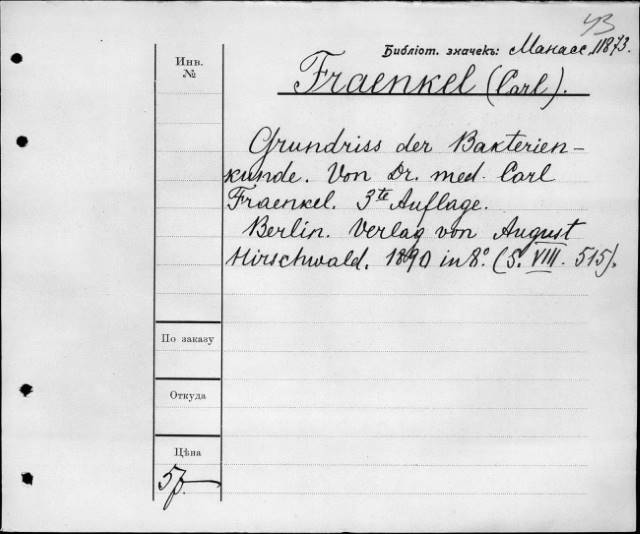 43
Библіот. значекъ: Манасс. 11873.
Инв.
№
Fraenkel (Carl).
Grundriss der Bakterien-
kunde. Von Dr. med. Carl
Fraenkel. 3te Auflage.
Berlin. Verlag von August
Hirschwald. 1890 in 8.° (S. VIII. 515).
По заказу
Откуда
Цѣна